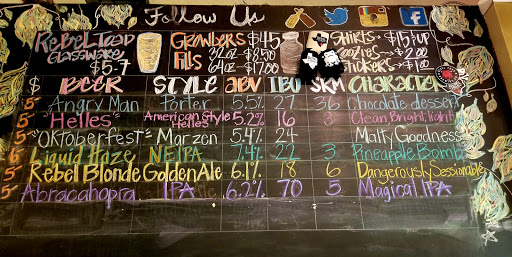 Follow Us
Rebel Toad Glassware $5-7
Growlers $45
Fills 32oz $8.50
64oz $17.00
Shirts $15 & up
Koozies $2.00
Stickers $1.00
$ BEER STYLE ABV IBU SRM Character
5 Angry Man Porter 5.5% 27 36 chocolate dessert
5 "Helles" American Style Helles 5.2% 16 3 Clean, Bright, light
5 "Oktoberfest" Marzen 5.4% 24 Malty Goodness
6 Liquid Haze NEIPA 7.4% 22 3 Pineapple Bomb
5 Rebel Blonde Golden Ale 6.1% 18 6 Dangerously Sessionable
5 Abracahopra IPA 6.2% 70 5 Magical IPA